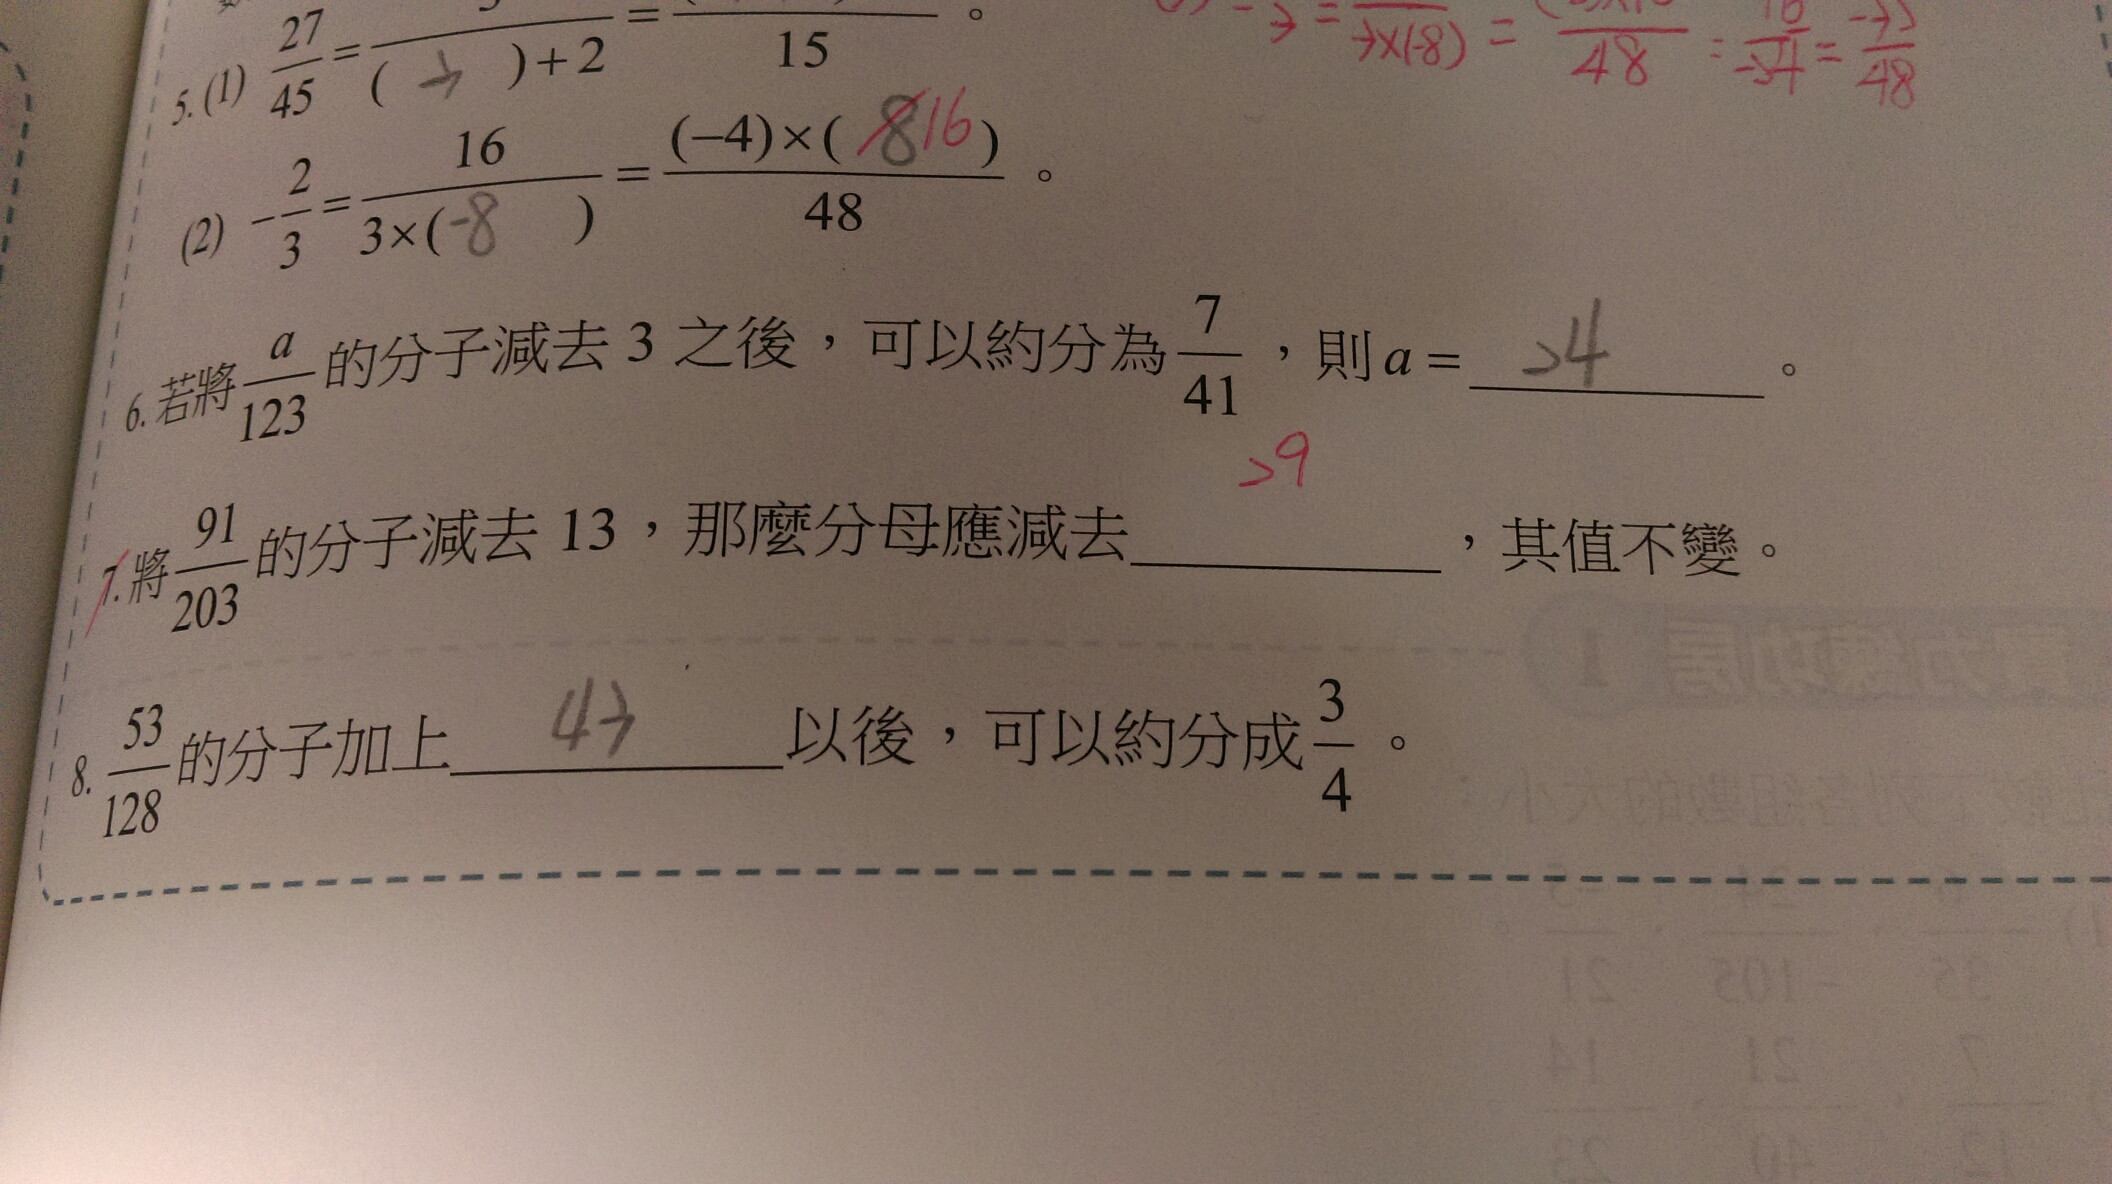 5.(1) 27/45 = /( )+2 = /15 。
= /7×(-8) = /48 = = /48
(2) -2/3 = 16/3×(-8) = (-4)×( 8 16 )/48 。
6. 若將 a/123 的分子減去 3 之後，可以約分為 7/41，則 a = 24 。
29
7. 將 91/203 的分子減去 13，那麼分母應減去 ，其值不變。
8. 53/128 的分子加上 43 以後，可以約分成 3/4。